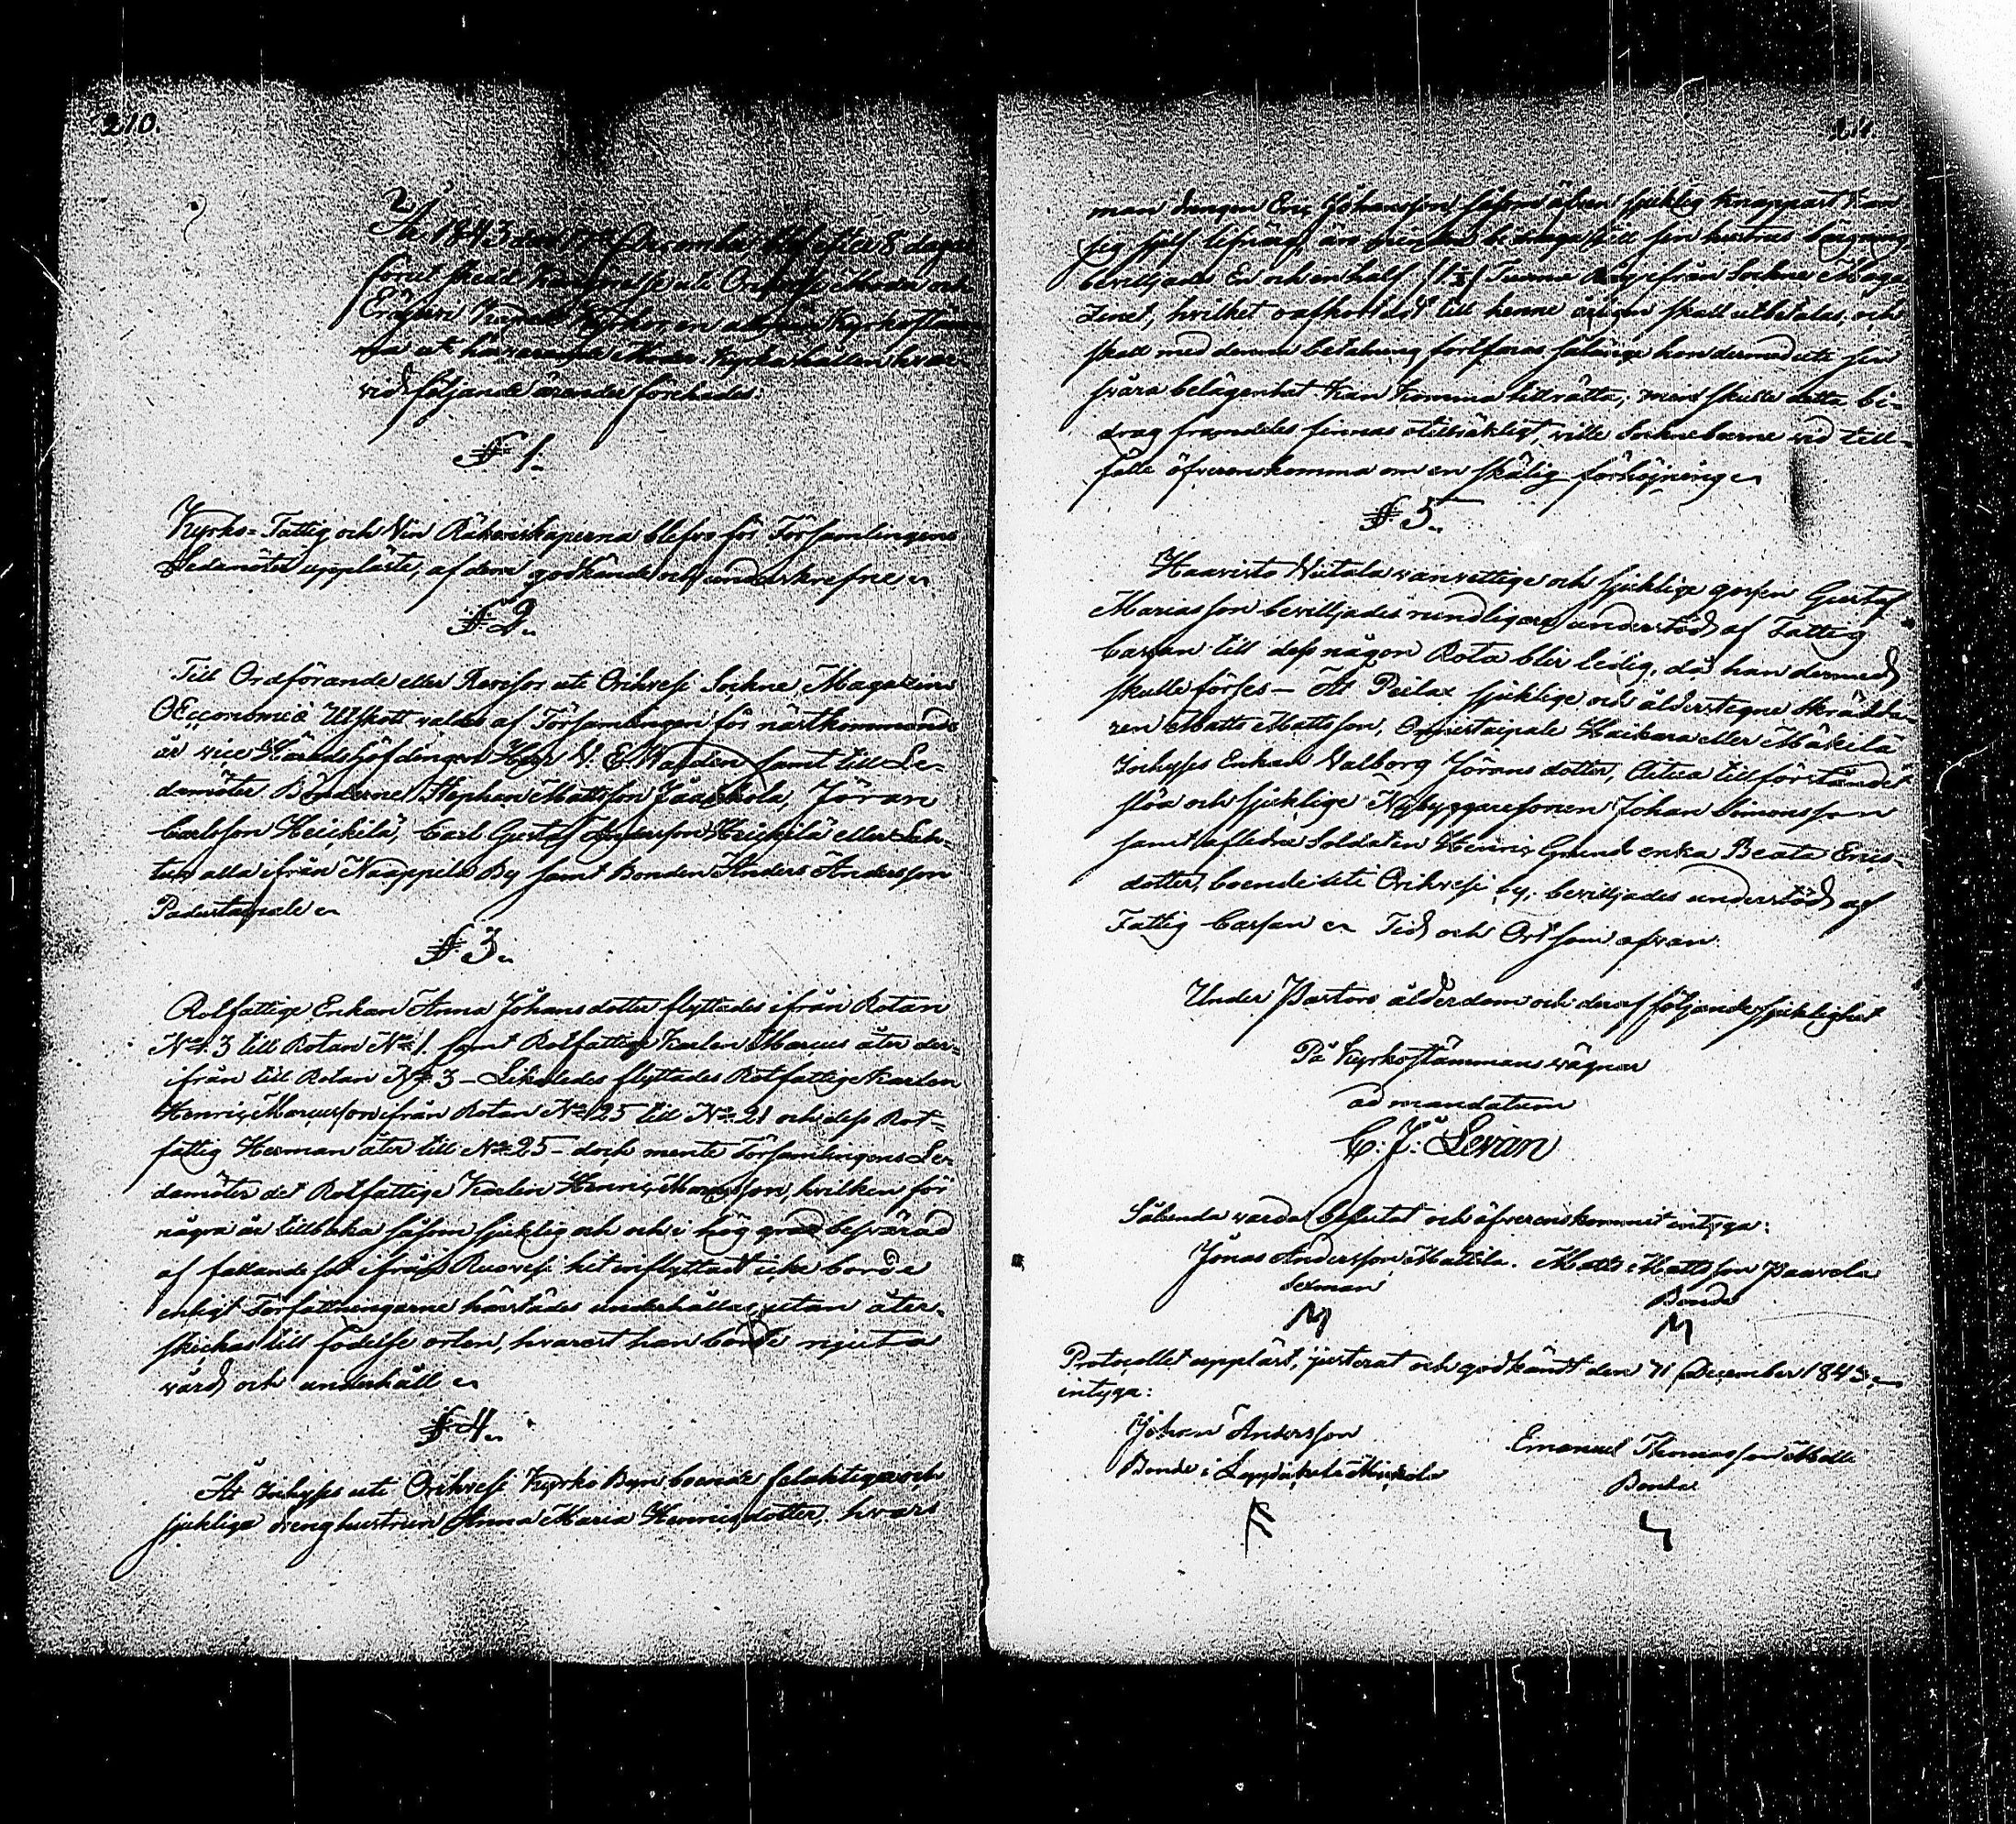 210.
År 1843 den 17de December, blef efter 8 dagar
förut skedd Kungörelse uti Orihvesi Moder och
Eräjervi Capell Kyrkor, en allmän Kyrkostäm-
ma uti härvarande Moder Kyrka hållen hvar-
vid följande ärender förehades.
§ 1.
Kyrko- Fattig och Vin Räkenskaperna blefvo för Församlingens
Ledamöter uppläste, af dem godkände och underskrefne
§ 2.
Till Ordförande eller Revisor uti Orihvesi Sockne Magazins
OEconomiœ Utskott valdes af Församlingen för nästkommande
år vice Häradshöfdingen Herr V. E. Wanden samt till Le-
damöter Bönderne Stephan Mattsson Jaakkola, Jöran
Carlsson Heickilä, Carl Gustaf Andersson Heickilä eller
alla ifrån Naappila By samt Bonden Anders Andersson
Padustaipale
§ 3.
Rotfattige Enkan Anna Johansdotter flyttades ifrån Rotan
No 3 till Rotan No 1. samt Rotfattige Karlen Marcus åter der-
ifrån till Rotan No 3 - Likaledes flyttades Rotfattige Karlen
Henric Marcusson ifrån Rotan No 25 till No 21 och dess Rot-
fattig Herman åter till No 25 - doch mente Församlingens Le-
damöter det Rotfattige Karlen Henric Marcusson, hvilken för
några år tillbaka såsom sjuklig och och i hög grad besvärad
af fallande sot ifrån Ruovesi hit inflyttadt icke borde
enligt Författningarne härstädes underhållas, utan åter-
skickas till födelse orten, hvarest han borde njuta
vård och underhåll
§ 4.
At Inhyses uti Orihvesi Kyrko Byn boende felaktiga och
sjukliga drenghustrun Anna Maria Henricsdotter, hvars
211.
man drengen Eric Johansson såsom äfven sjuklig knappast kan
sig sjelf lifnära, än mindre bidraga till sin hustrus bergning
beviljades En och en half (1½) Tunna Råg ifrån Sockne Maga-
zinet, hvilket till henne årligen skall utbetalas, och
skall med denna betalning fortfaras sålänge hon dermed uti sin
svåra belägenhet kan komma tillrätta; men skulle detta bi-
drag framdeles finnas otillräckligt, ville Sockneboerne vid till-
fälle öfverenskomma om en skälig förhöjning
§ 5.
Haavisto Nütala vanvettige och sjuklige gossen Gustaf
Mariasson beviljades nundligare understöd af Fattig
Cassan till dess någon Rota blir ledig, då han dermed
skulle förses - At Peilax sjuklige och ålderstegne skrädda-
ren Matts Mattsson, Onnistaipale Kaikara eller Mäkilä
Inhyses Enkan Valborg Jöransdotter, till förståndet
slöa och sjuklige Nybyggaresonen Johan Simonsson
samt afledne Soldaten Henric Grund enka Beata Erics-
dotter, boende uti Orihvesi by, beviljades understöd af
Fattig Cassan Tid och Ort som ofvan.
Under Pastors ålderdom och deraf följande sjuklighet
På Kyrkostämmans vägnar
ad mandatum
C: J: Levan
Sålunda varda beslutat och öfverenskommit intyga:
Jonas Andersson Mattila. Matts Mattsson Paavola
Sexman Bonde
Protocollet uppläst, justerat och godkändt den 31 December 1843
intyga:
Johan Andersson Emanuel Thomasson
Bonde i Bonde